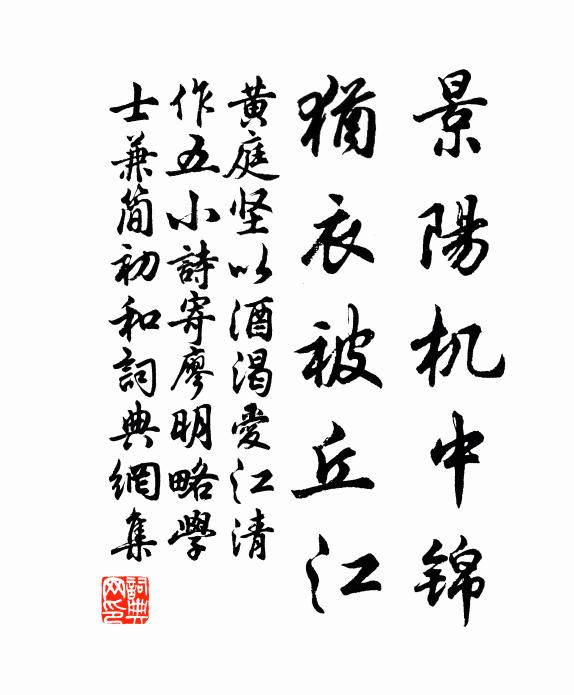 景陽机中锦
猶衣被丘江
黄庭坚以酒渴愛江清
作五小詩寄廖明略學
士兼简初和詞典網集
詞典网印